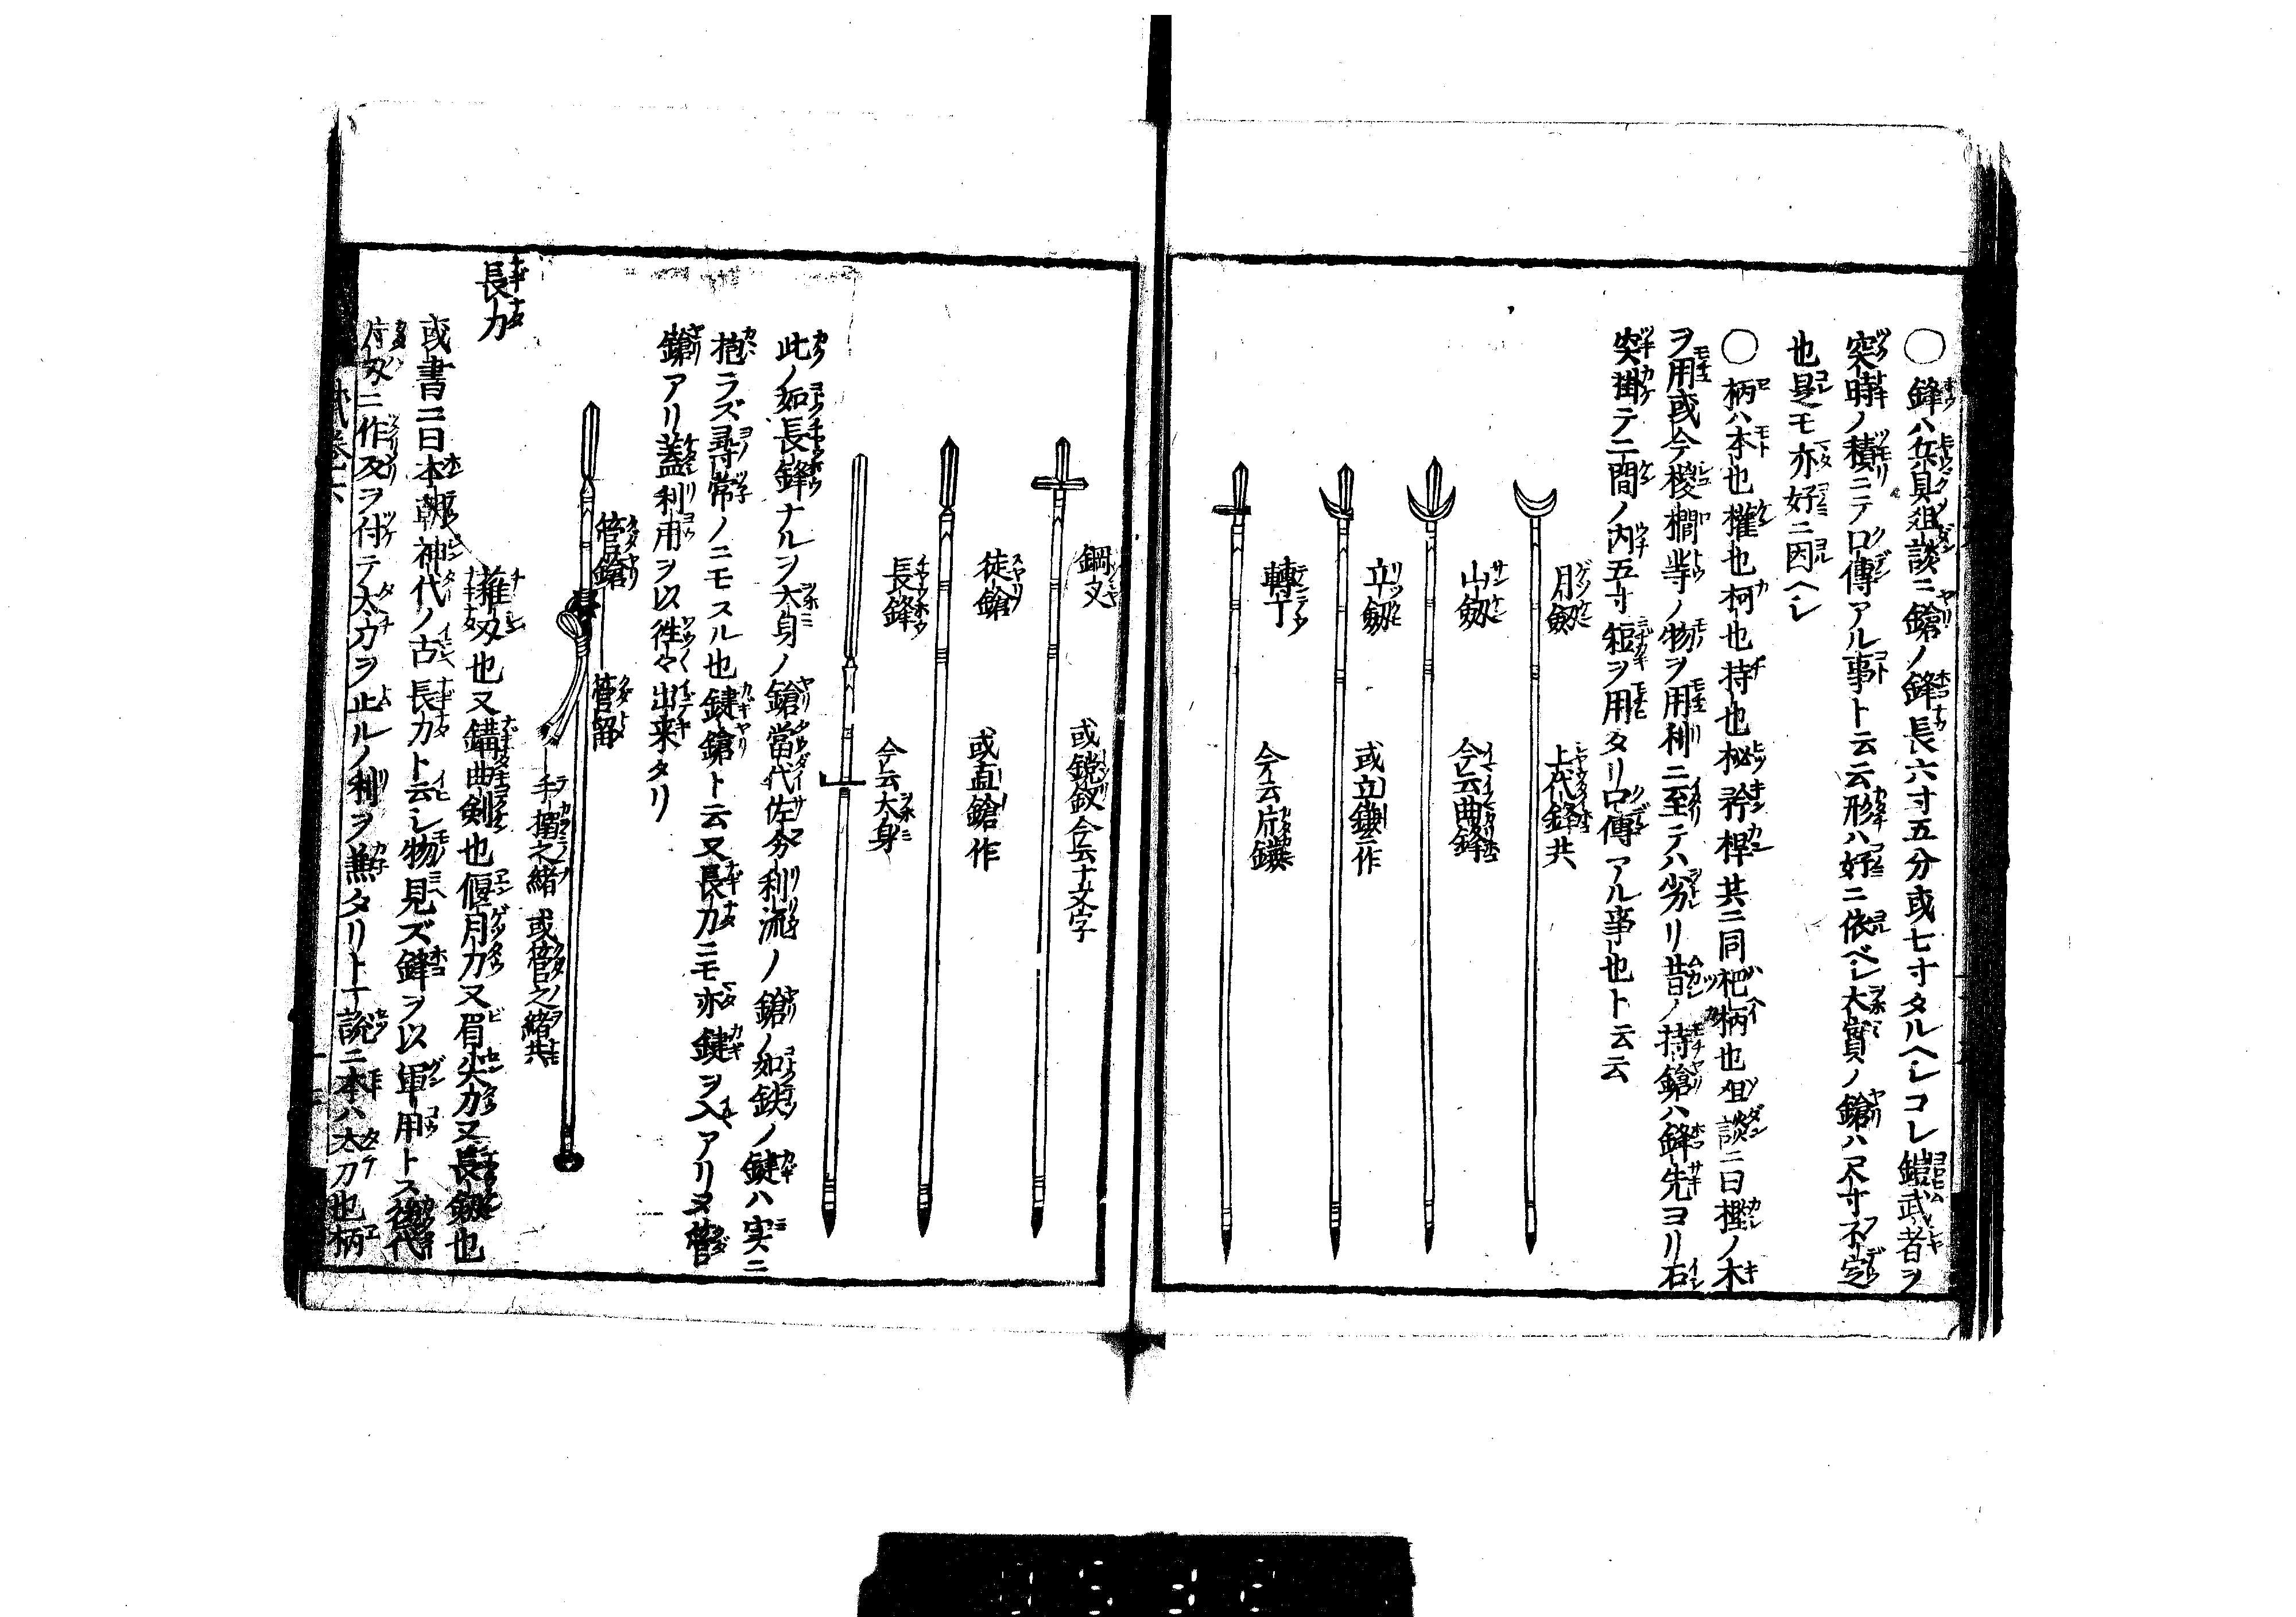 ○鋒ハ兵具狙談ニ鎗ノ鋒長六寸五分或七寸タルヘシコレ鎧武者ヲ
突時ノ積ニテ口傳アル事ト云云形ハ好ニ依ベシ大實ノ鎗ハ尺寸不定
也是モ亦好ニ因ヘシ
○柄ハ本也權也柯也持也柲矜桿共ニ同杷柄也俎談ニ曰樫ノ木
ヲ用或今椶櫚䓁ノ物ヲ用利ニ至テハ劣リ昔ノ持鎗ハ鋒先ヨリ石
突掛テ二間ノ内五寸短ヲ用タリ口傳アル事也ト云云
月劔 上代鋒共
山劔 今云曲鋒
立劔 或立鎌作
轉丁 今云片鎌
鋼叉 或鐃釵今云十文字
徒鎗 或直鎗作
長鋒 今云大身
此ノ如長鋒ナルヲ大身ノ鎗當代佐分利流ノ鎗ノ如鉄ノ鍵ハ実ニ
抱ラズ尋常ノニモスル也鍵鎗ト云又長刀ニモ亦鍵ヲ入アリ又管
鎗アリ蓋利用ヲ以往々出来タリ
管鎗
管留
手搦之緒 或管之緒共
長刀
薙刄也又鐇曲剣也偃月刀又眉尖刀又長劔也
或書ニ曰本朝神代ノ古長刀ト云シ物見ズ鋒ヲ以軍用トス後代
片刄ニ作及ヲ付テ太刀ヲ止ルノ利ヲ兼タリト一説ニ本ハ太刀也柄